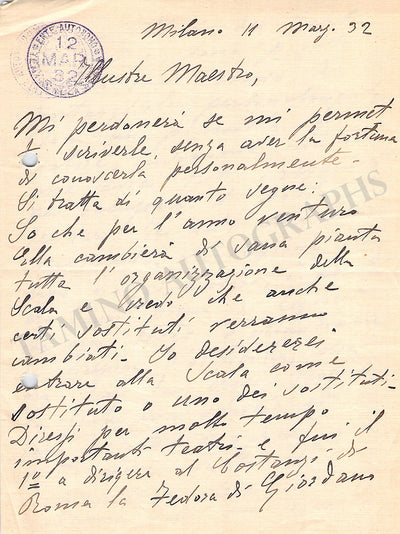 Milano 11 Marz. 32
ENTE AUTONOMO
12
MAR
32
Illustre Maestro,
Mi perdonerà se mi permet
to scriverle, senza aver la fortuna
di conoscerla personalmente.
Si tratta di quanto segue:
So che per l'anno venturo
Ella cambierà di sana pianta
tutta l'organizzazione della
Scala e credo che anche
certi sostituti verranno
cambiati. Io desidererei
entrare alla Scala come
sostituto o uno dei sostituti.
Diressi per molto tempo
importanti teatri e fui il
1º a dirigere al Costanzi di
Roma la Fedora di Giordano
TAMINO AUTOGRAPHS